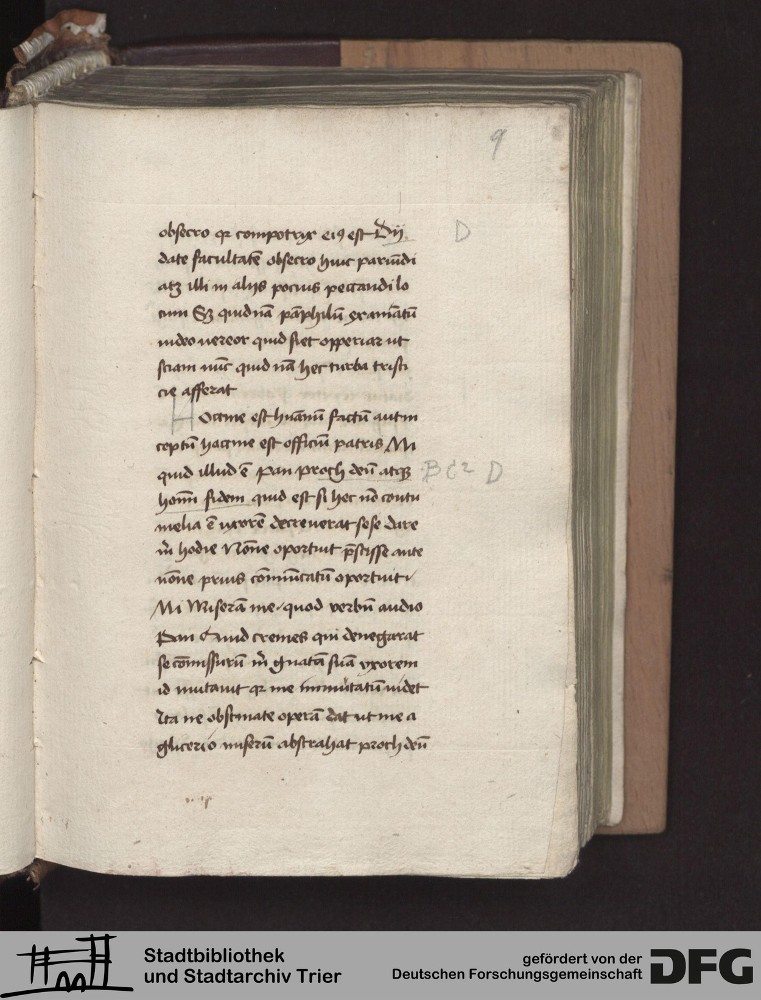 9
obsecro qꝛ compotrix ei9 est Dij D
date facultatē obsecro huic pariūdi
atꝫ illi in aliis pocius peccandi lo
cum Sꝫ quidnā pāphilū exanīatū
video uereor quid siet opperiar ut
sciam nūc quid nā hec turba tristi
cie afferat
H Occine est hūanū factū aut in
ceptū haccine est officiū patris Mi
quid illud ē Pan proch deū atqꝫ B C2 D
hoīm fidem quid est si hec nō contu
melia ē uxorē decreuerat sese dare
m̄ hodie Nōne oportuit p̄scisse ante
nōne prius cōmūicatū oportuit
Mi Miserā me quod verbū audio
Pan Quid cremes qui denegarat
se cōmissurū m̄ gnatā suā uxorem
id mutauit qꝛ me immutatū uidet
Ita ne obstinate operā dat ut me a
glicerio miserū abstrahat proch deū
Stadtbibliothek
und Stadtarchiv Trier
gefördert von der
Deutschen Forschungsgemeinschaft
DFG